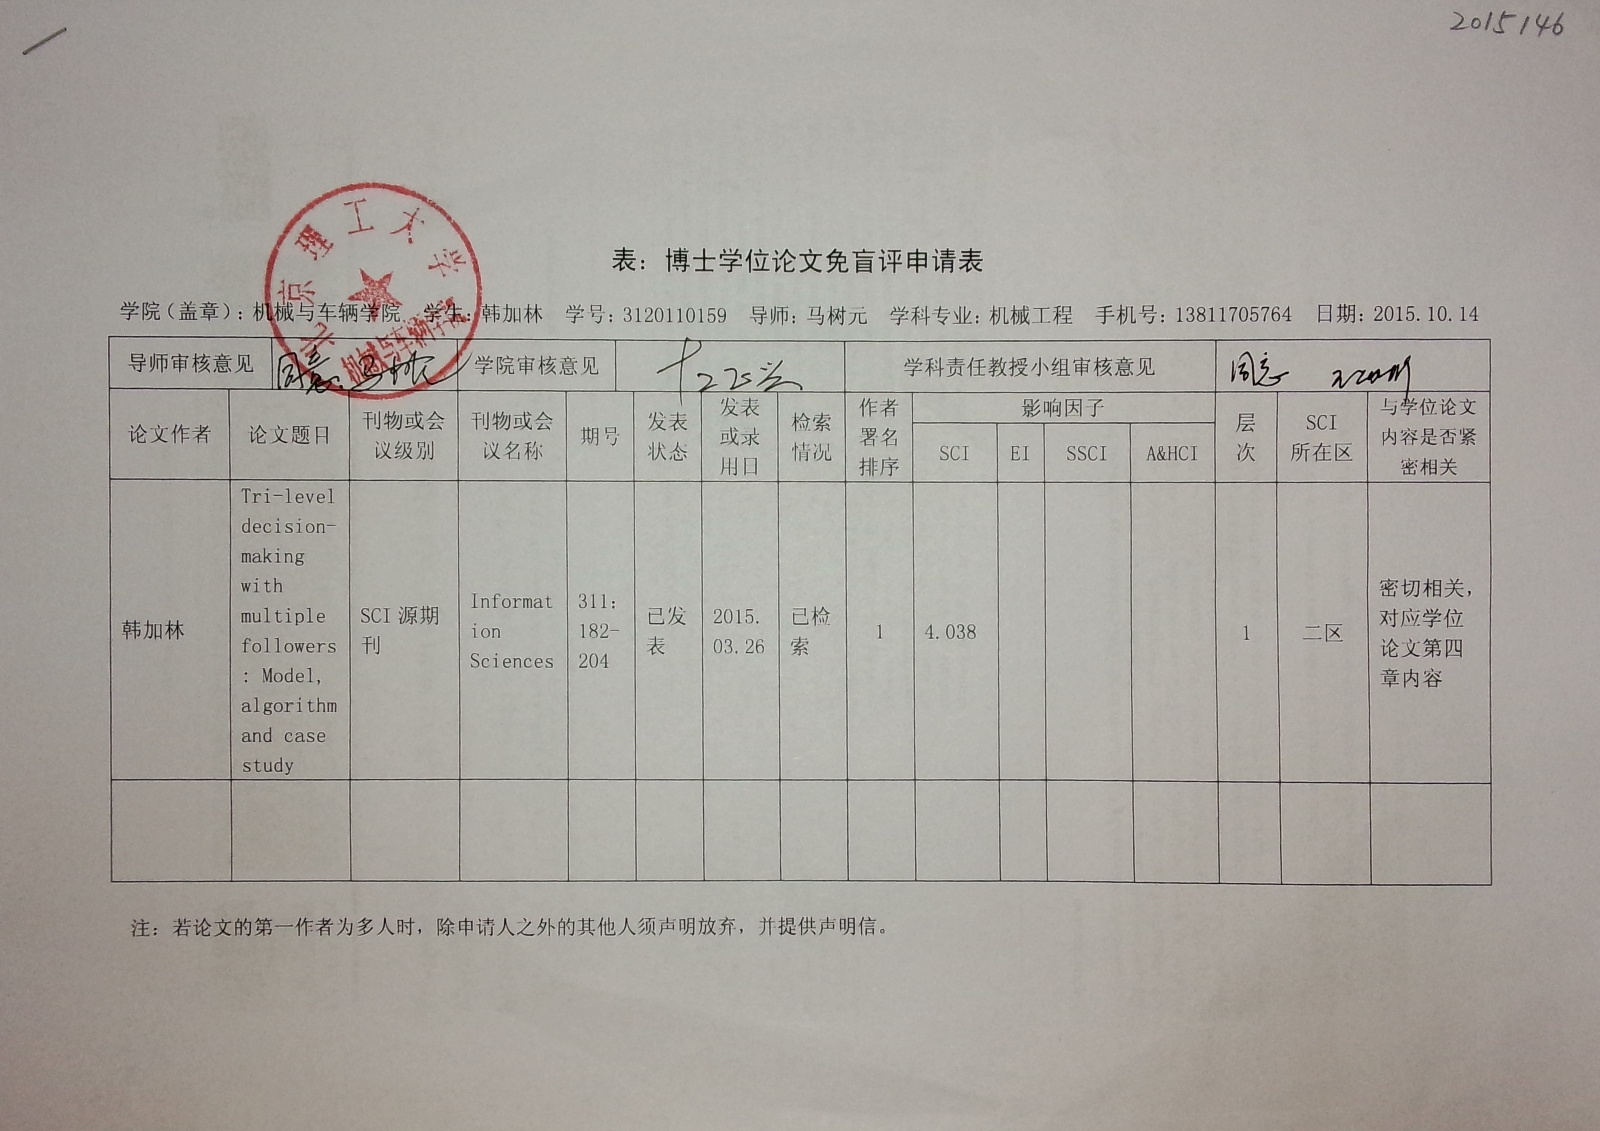 2015146
北京理工大学
机械与车辆学院
表：博士学位论文免盲评申请表
学院（盖章）：机械与车辆学院 学生：韩加林 学号：3120110159 导师：马树元 学科专业：机械工程 手机号：13811705764 日期：2015.10.14
导师审核意见 同意 学院审核意见 学科责任教授小组审核意见 同意
论文作者
论文题目
刊物或会
议级别
刊物或会
议名称
期号
发表
状态
发表
或录
用日
检索
情况
作者
署名
排序
影响因子
SCI EI SSCI A&HCI
层
次
SCI
所在区
与学位论文
内容是否紧
密相关
韩加林
Tri-level
decision-
making
with
multiple
followers
: Model,
algorithm
and case
study
SCI 源期
刊
Informat
ion
Sciences
311:
182-
204
已发
表
2015.
03.26
已检
索
1
4.038
1
二区
密切相关，
对应学位
论文第四
章内容
注：若论文的第一作者为多人时，除申请人之外的其他人须声明放弃，并提供声明信。